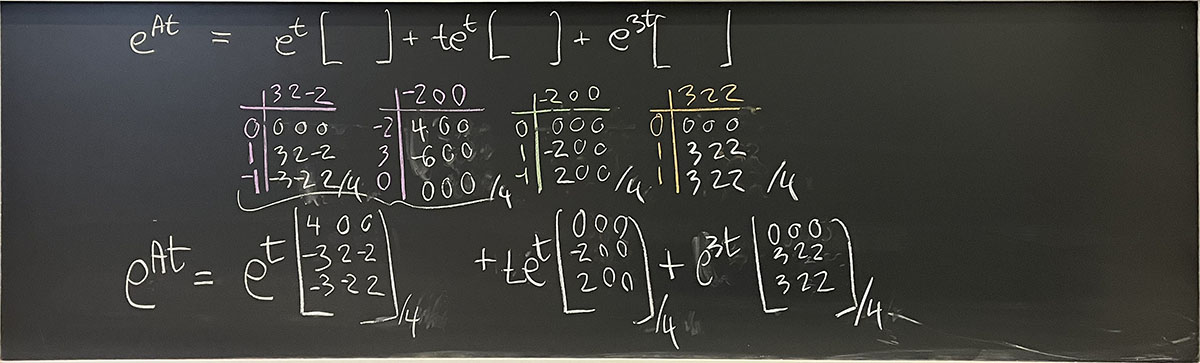 e^{At} = e^t [ ] + te^t [ ] + e^{3t} [ ]
3 2 -2 | -2 0 0 | -2 0 0 | 3 2 2
0 | 0 0 0 | -2 | 4 0 0 | 0 | 0 0 0 | 0 | 0 0 0
1 | 3 2 -2 | 3 | -6 0 0 | 1 | -2 0 0 | 1 | 3 2 2
-1 | -3 -2 2 /4 | 0 | 0 0 0 /4 | -1 | 2 0 0 /4 | 1 | 3 2 2 /4
4 0 0 | 0 0 0 | 0 0 0
e^{At} = e^t [ -3 2 -2 ] + te^t [ -2 0 0 ] + e^{3t} [ 3 2 2 ]
-3 -2 2 /4 | 2 0 0 /4 | 3 2 2 /4